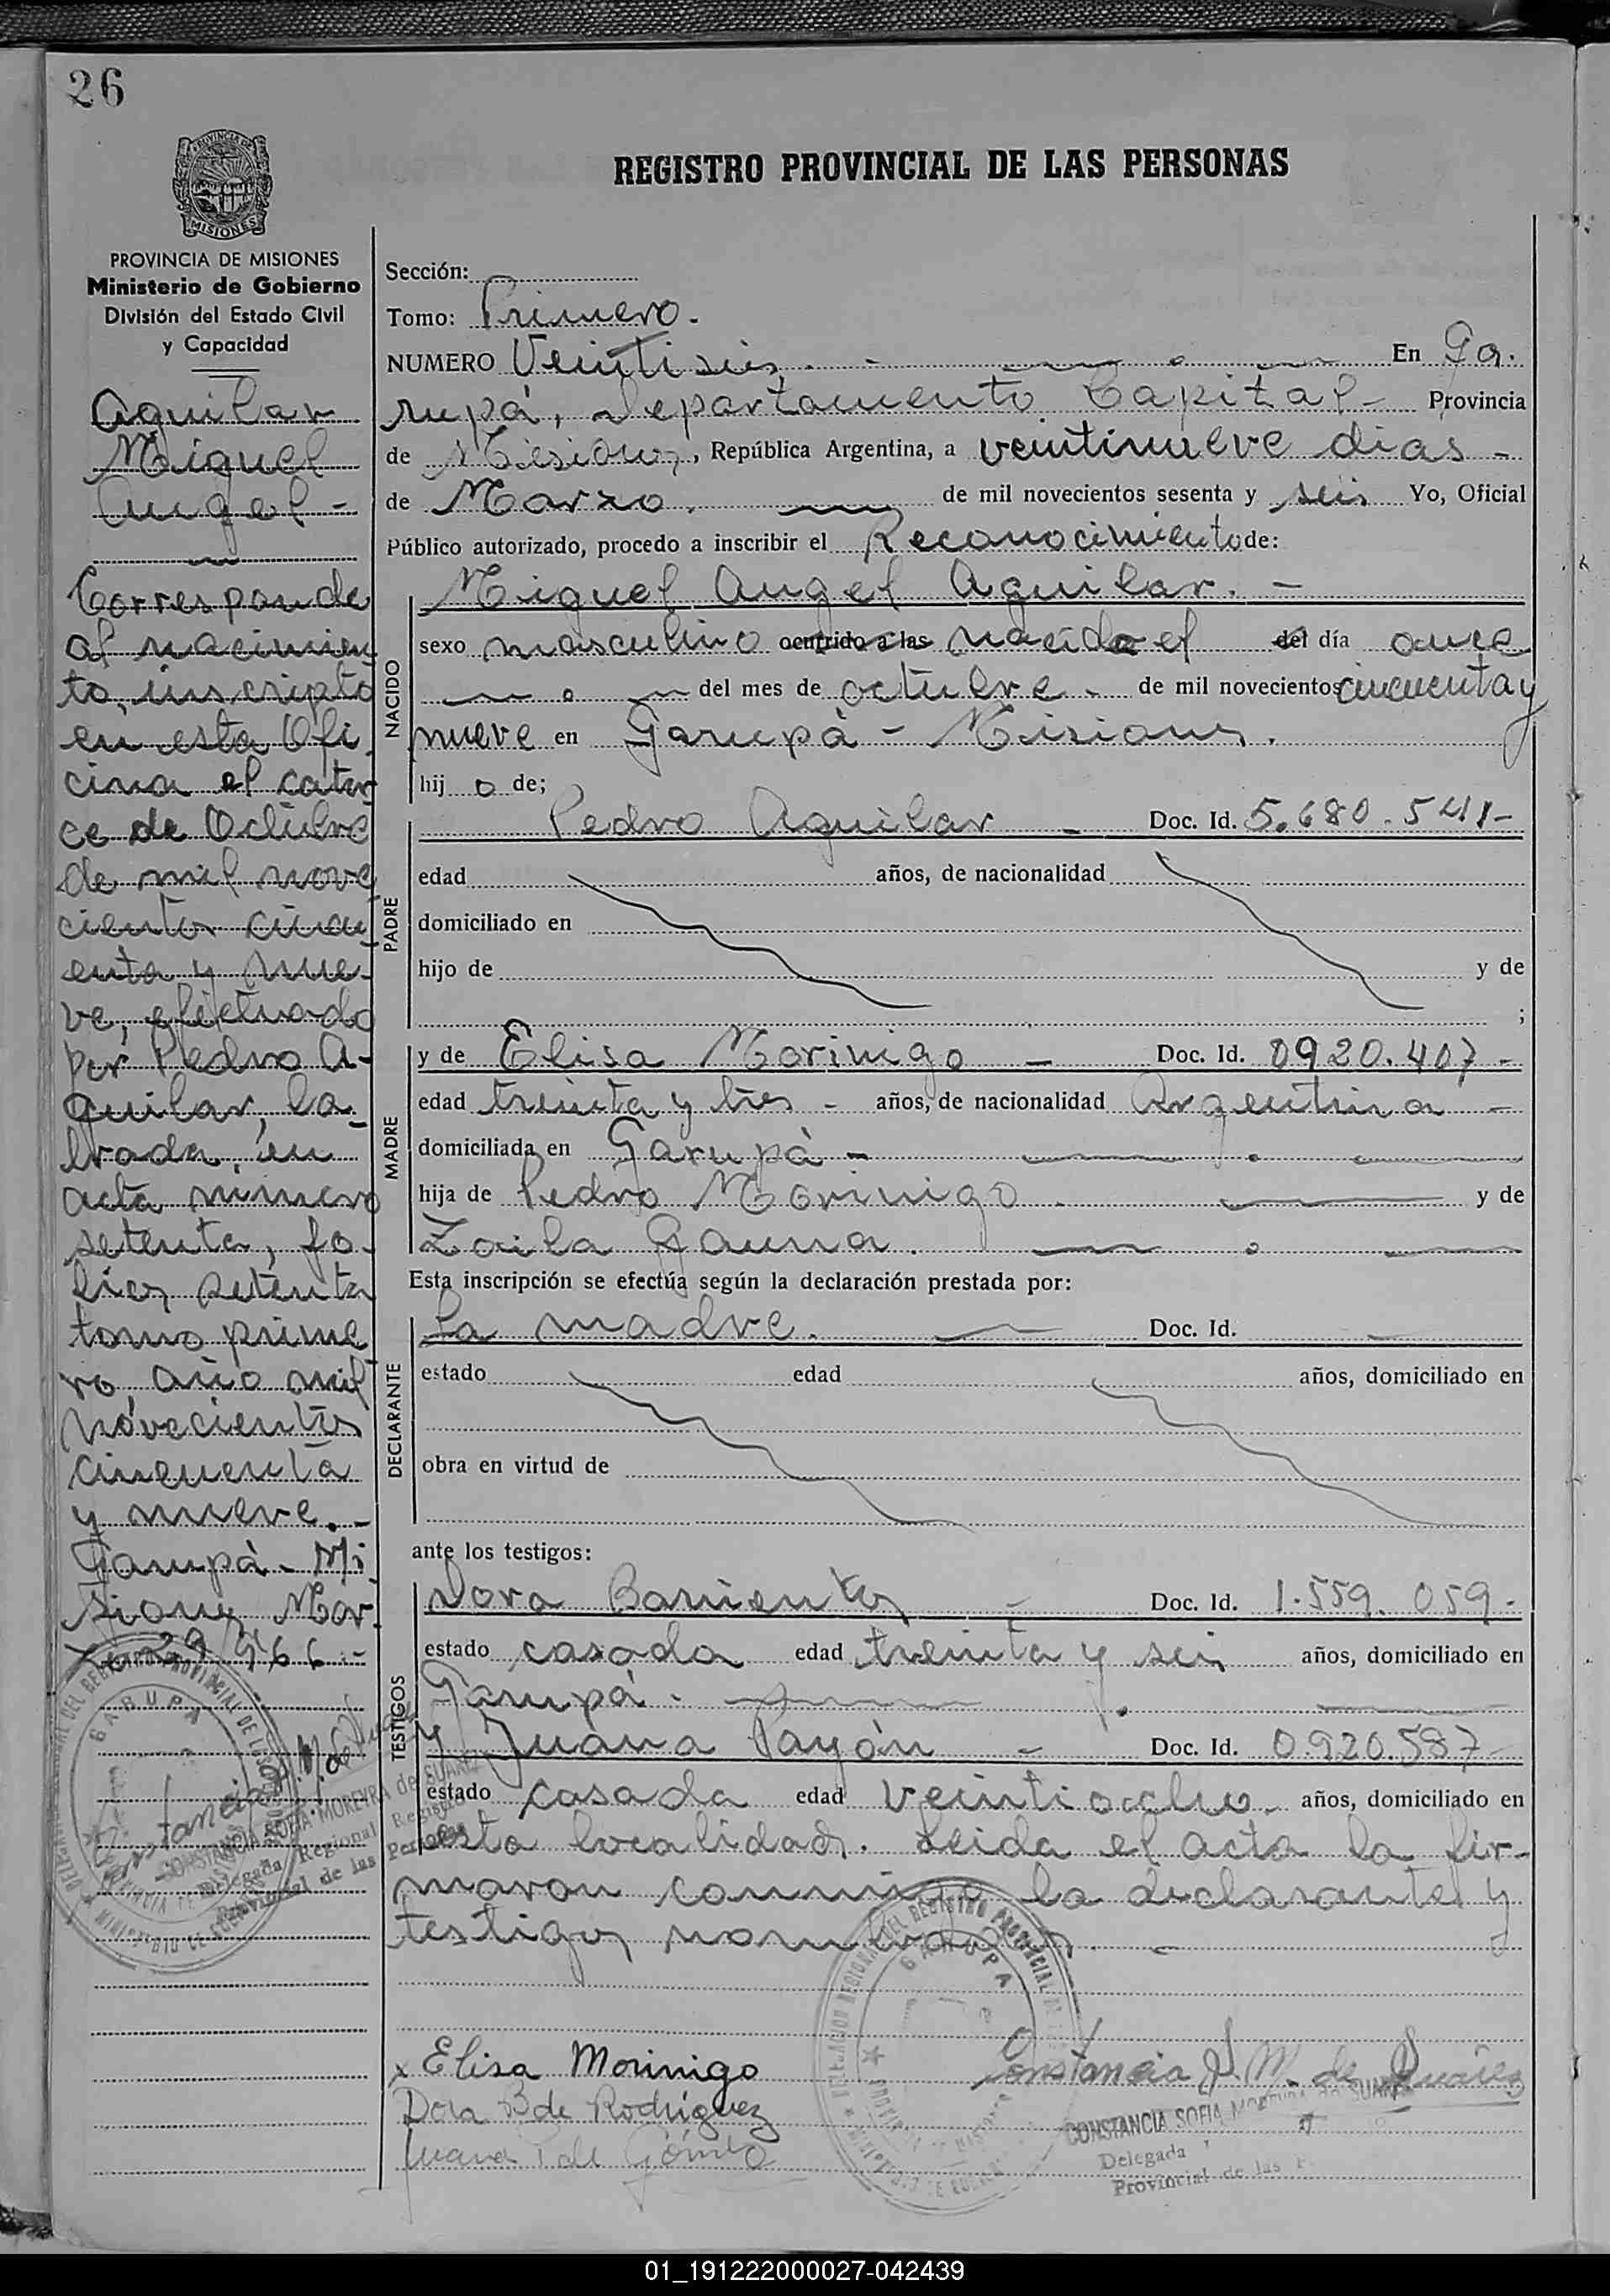 26
PROVINCIA DE
MISIONES
REGISTRO PROVINCIAL DE LAS PERSONAS
PROVINCIA DE MISIONES
Ministerio de Gobierno
División del Estado Civil
y Capacidad
Aguilar
Miguel
Angel -
Corresponde
al nacimien
to, inscripto
en esta Ofi
cina el cator
ce de Octubre
de mil nove
cientos cincu
enta y nue-
ve, efectuado
por Pedro A-
guilar, la-
brada, en
acta número
setenta, fo-
lios setenta
tomo prime
ro año mil
novecientos
cincuenta
y nueve.-
Garupá - Mi
siones Mar
zo 29/966.-
Sección:
Tomo: Primero.
NUMERO Veintiseis. En Ga.
rupá, Departamento Capital- Provincia
de Misiones, República Argentina, a veintinueve dias -
de Marzo. de mil novecientos sesenta y seis Yo, Oficial
Público autorizado, procedo a inscribir el Reconocimiento de:
NACIDO
Miguel Angel Aguilar. -
sexo masculino ocurrido a las nacido el del día once
del mes de octubre - de mil novecientos cincuenta y
nueve en Garupá - Misiones.
hij o de;
PADRE
Pedro Aguilar - Doc. Id. 5.680.541-
edad años, de nacionalidad
domiciliado en
hijo de y de
;
MADRE
y de Elisa Morinigo - Doc. Id. 0920.407 -
edad treinta y tres - años, de nacionalidad Argentina -
domiciliada en Garupá -
hija de Pedro Morinigo y de
Zoila Gauna.
Esta inscripción se efectúa según la declaración prestada por:
DECLARANTE
La madre. Doc. Id. -
estado edad años, domiciliado en
obra en virtud de
ante los testigos:
TESTIGOS
Dora Barrientos - Doc. Id. 1.559.059-
estado casada edad treinta y seis años, domiciliado en
Garupá.
y Juana Payón - Doc. Id. 0.920.587-
estado casada edad veintiocho años, domiciliado en
esta localidad. Leida el acta la fir-
maron conmigo la declarante y
testigos nombrados. -
x Elisa Morinigo
Dora B de Rodriguez
Juana P de
Constancia S. M. de Suárez
CONSTANCIA SOFIA MOREYRA de SUAREZ
Delegada
Provincial de las
GARUPA
CONSTANCIA SOFIA MOREYRA de SUAREZ
Delegada Regional Registro
Provincial de las Personas
GARUPA
01_191222000027-042439